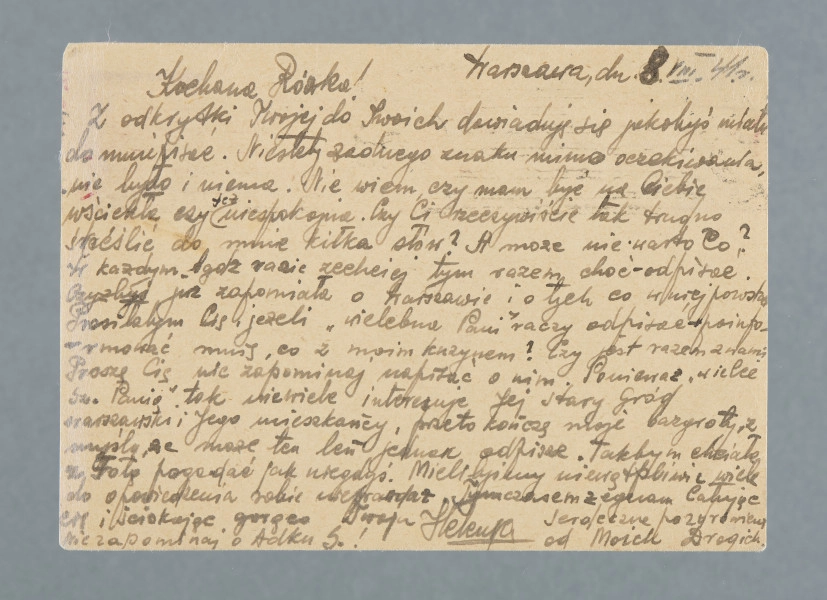 Warszawa, dn. 8.VIII.41r.
Kochana Rózka!
Z odkrytki Twojej do Swoich dowiaduję się jakobyś miała
do mnie pisać. Niestety żadnego znaku mimo oczekiwania,
nie było i niema. Nie wiem, czy mam być na Ciebie
wściekła czy też niespokojna. Czy Ci rzeczywiście tak trudno
skreślić do mnie kilka słów? A może nie warto Co?
W każdym bądz razie zechciej tym razem choć-odpisać.
już zapomiała o Warszawie i o tych co w niej
Prosiłabym Cię jeżeli "wielebna Pani" raczy odpisać poinfo-
rmować mnię, co z moim kuzynem? Czy jest razem z wami
Proszę Cię nie zapominaj napisać o nim. Ponieważ "wielce
Sz. Panią" tak niewiele interesuje Jej stary gród
warszawski i Jego mieszkańcy, przeto kończę moje bazgroty, z
myślą, że może ten leń jednak odpisze. Takbym chciała
z Tobą pogadać jak niegdyś. Miałybyśmy niewątpliwie wiele
do opowiedzenia sobie nieprawdaż. Tymczasem żegnam Całując
Cię i ściskając gorąco Twoja Helenka
Serdeczne pozdrowienia
od Moich Drogich.
Nie zapominaj o Adku S.!